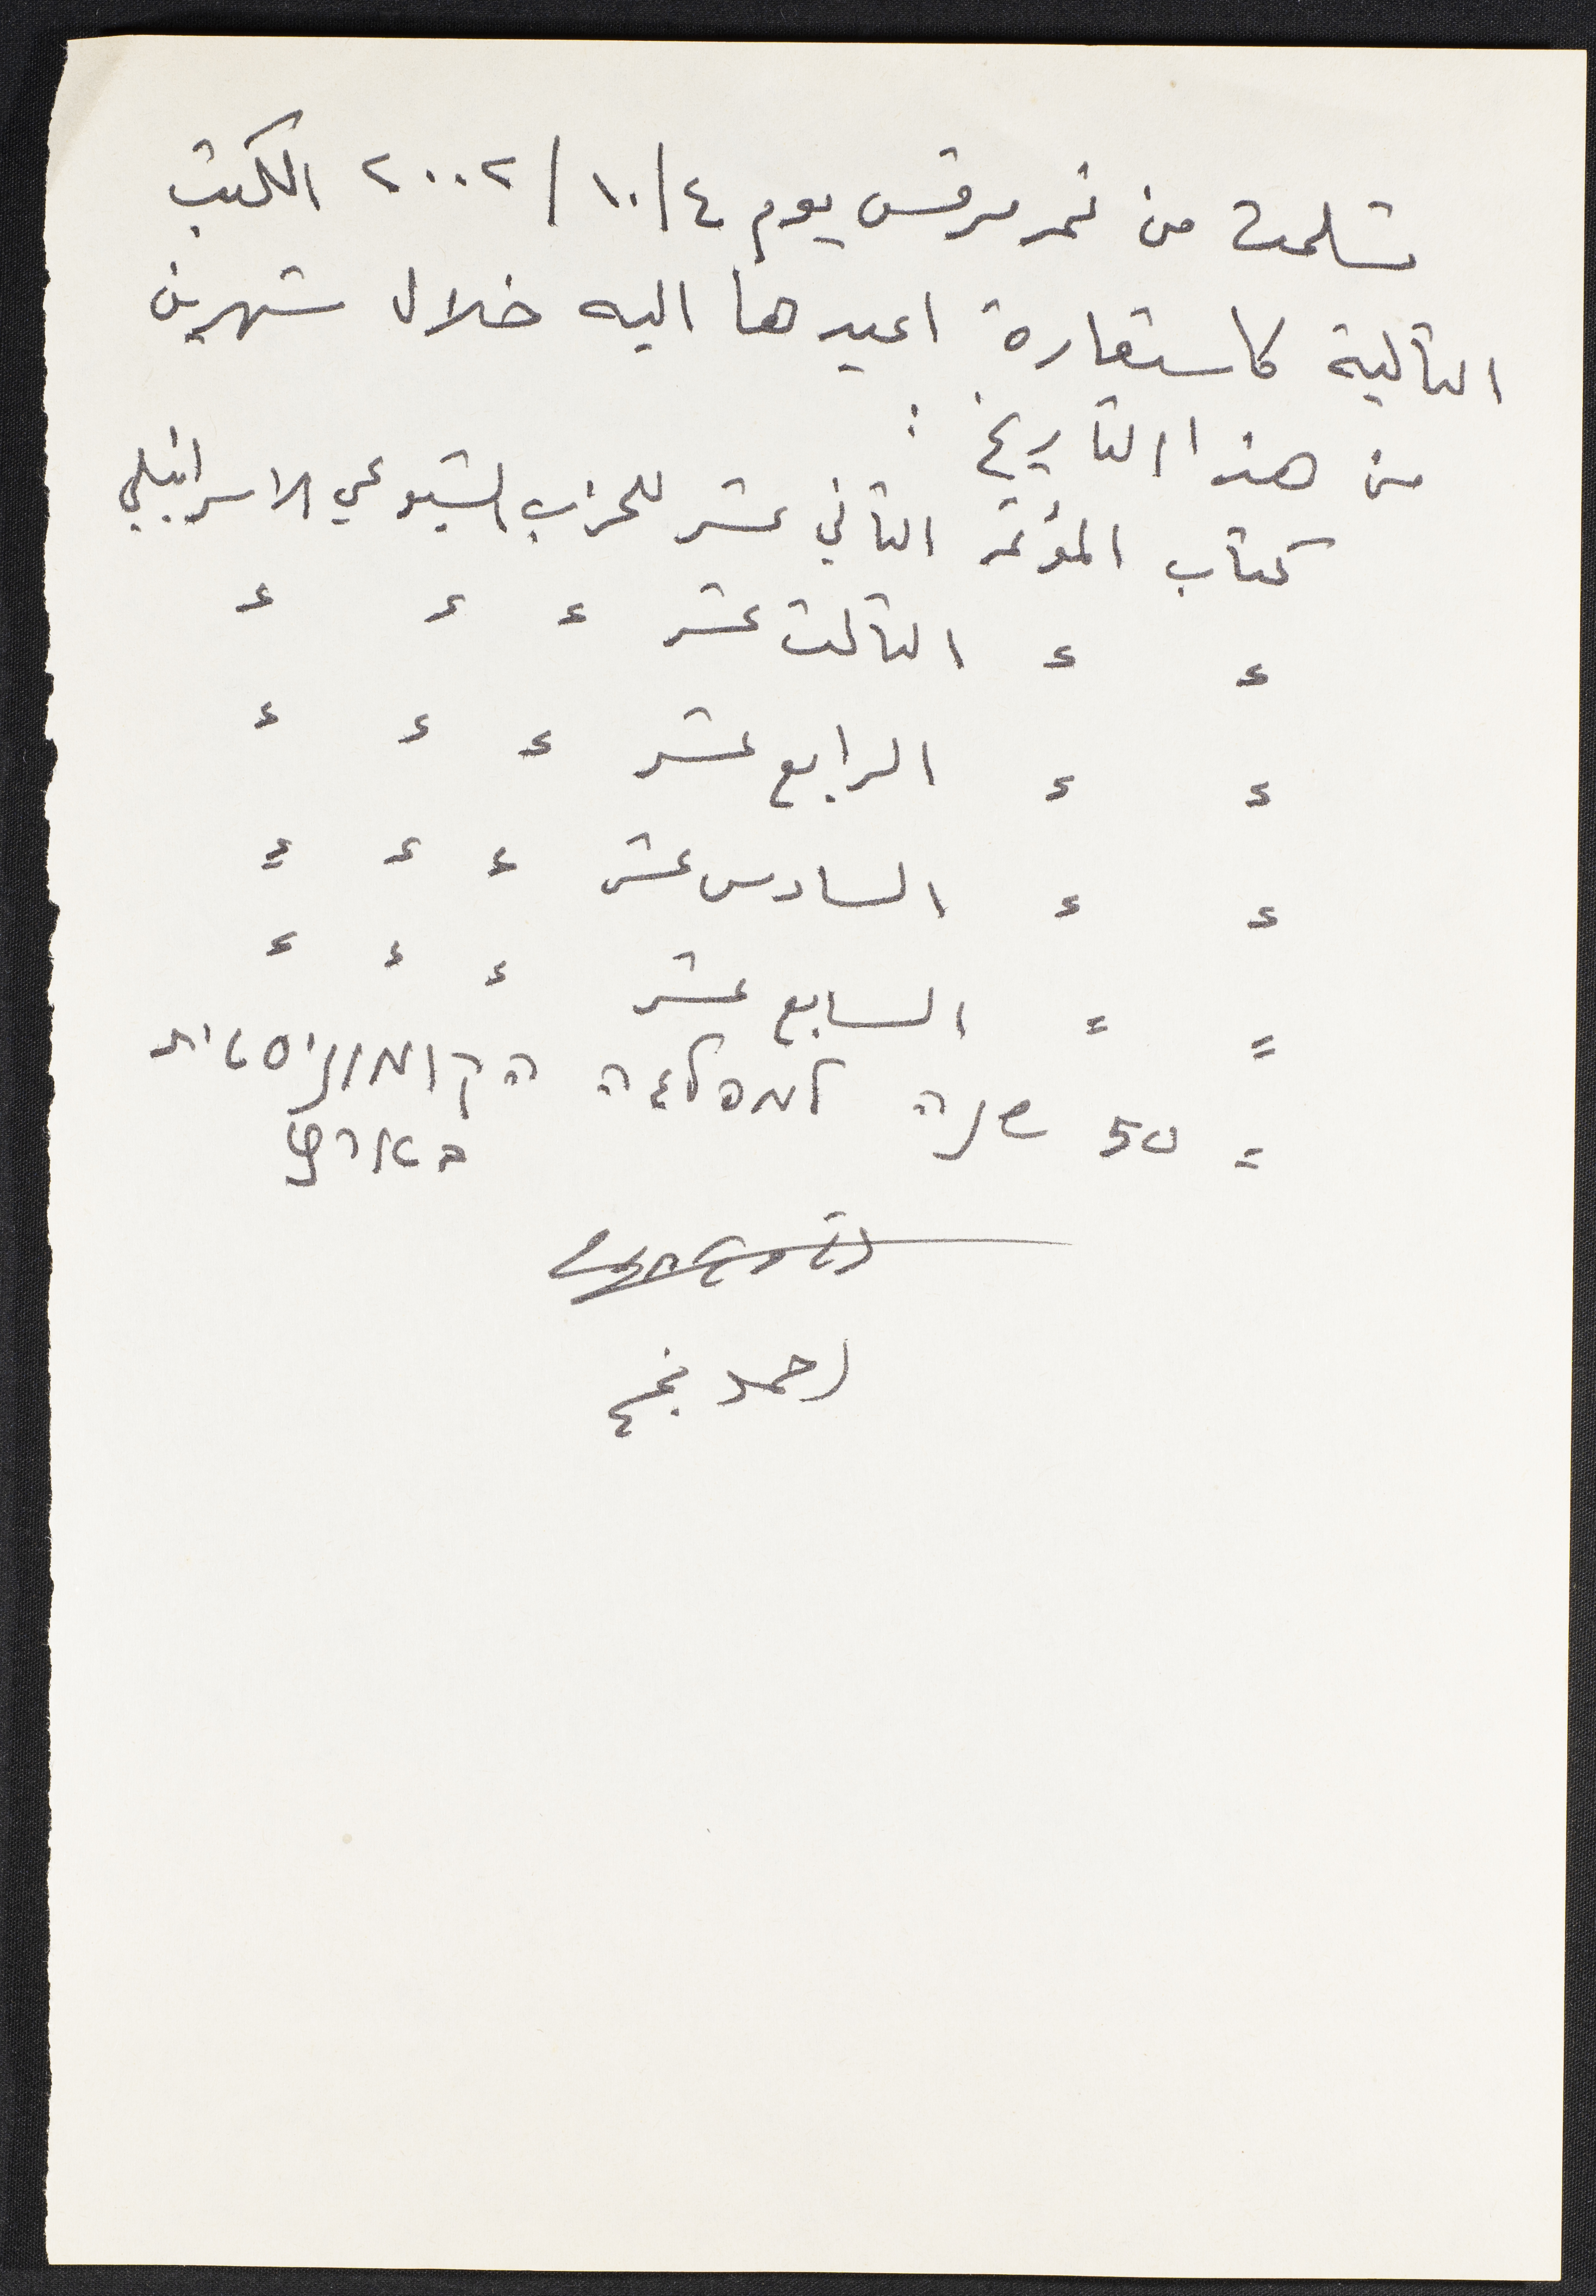 تسلمت من نمر مرقس يوم ٤/١٠/٢٠٠٢ الكتب
التالية كاستعارة اعيدها اليه خلال شهرين
من هذا التاريخ :
كتاب المؤتمر الثاني عشر للحزب الشيوعي الاسرائيلي
= = الثالث عشر = = =
= = الرابع عشر = = =
= = السادس عشر = = =
= = السابع عشر = = =
= 50 שנה למפלגה הקומוניסטית
בארץ
احمد